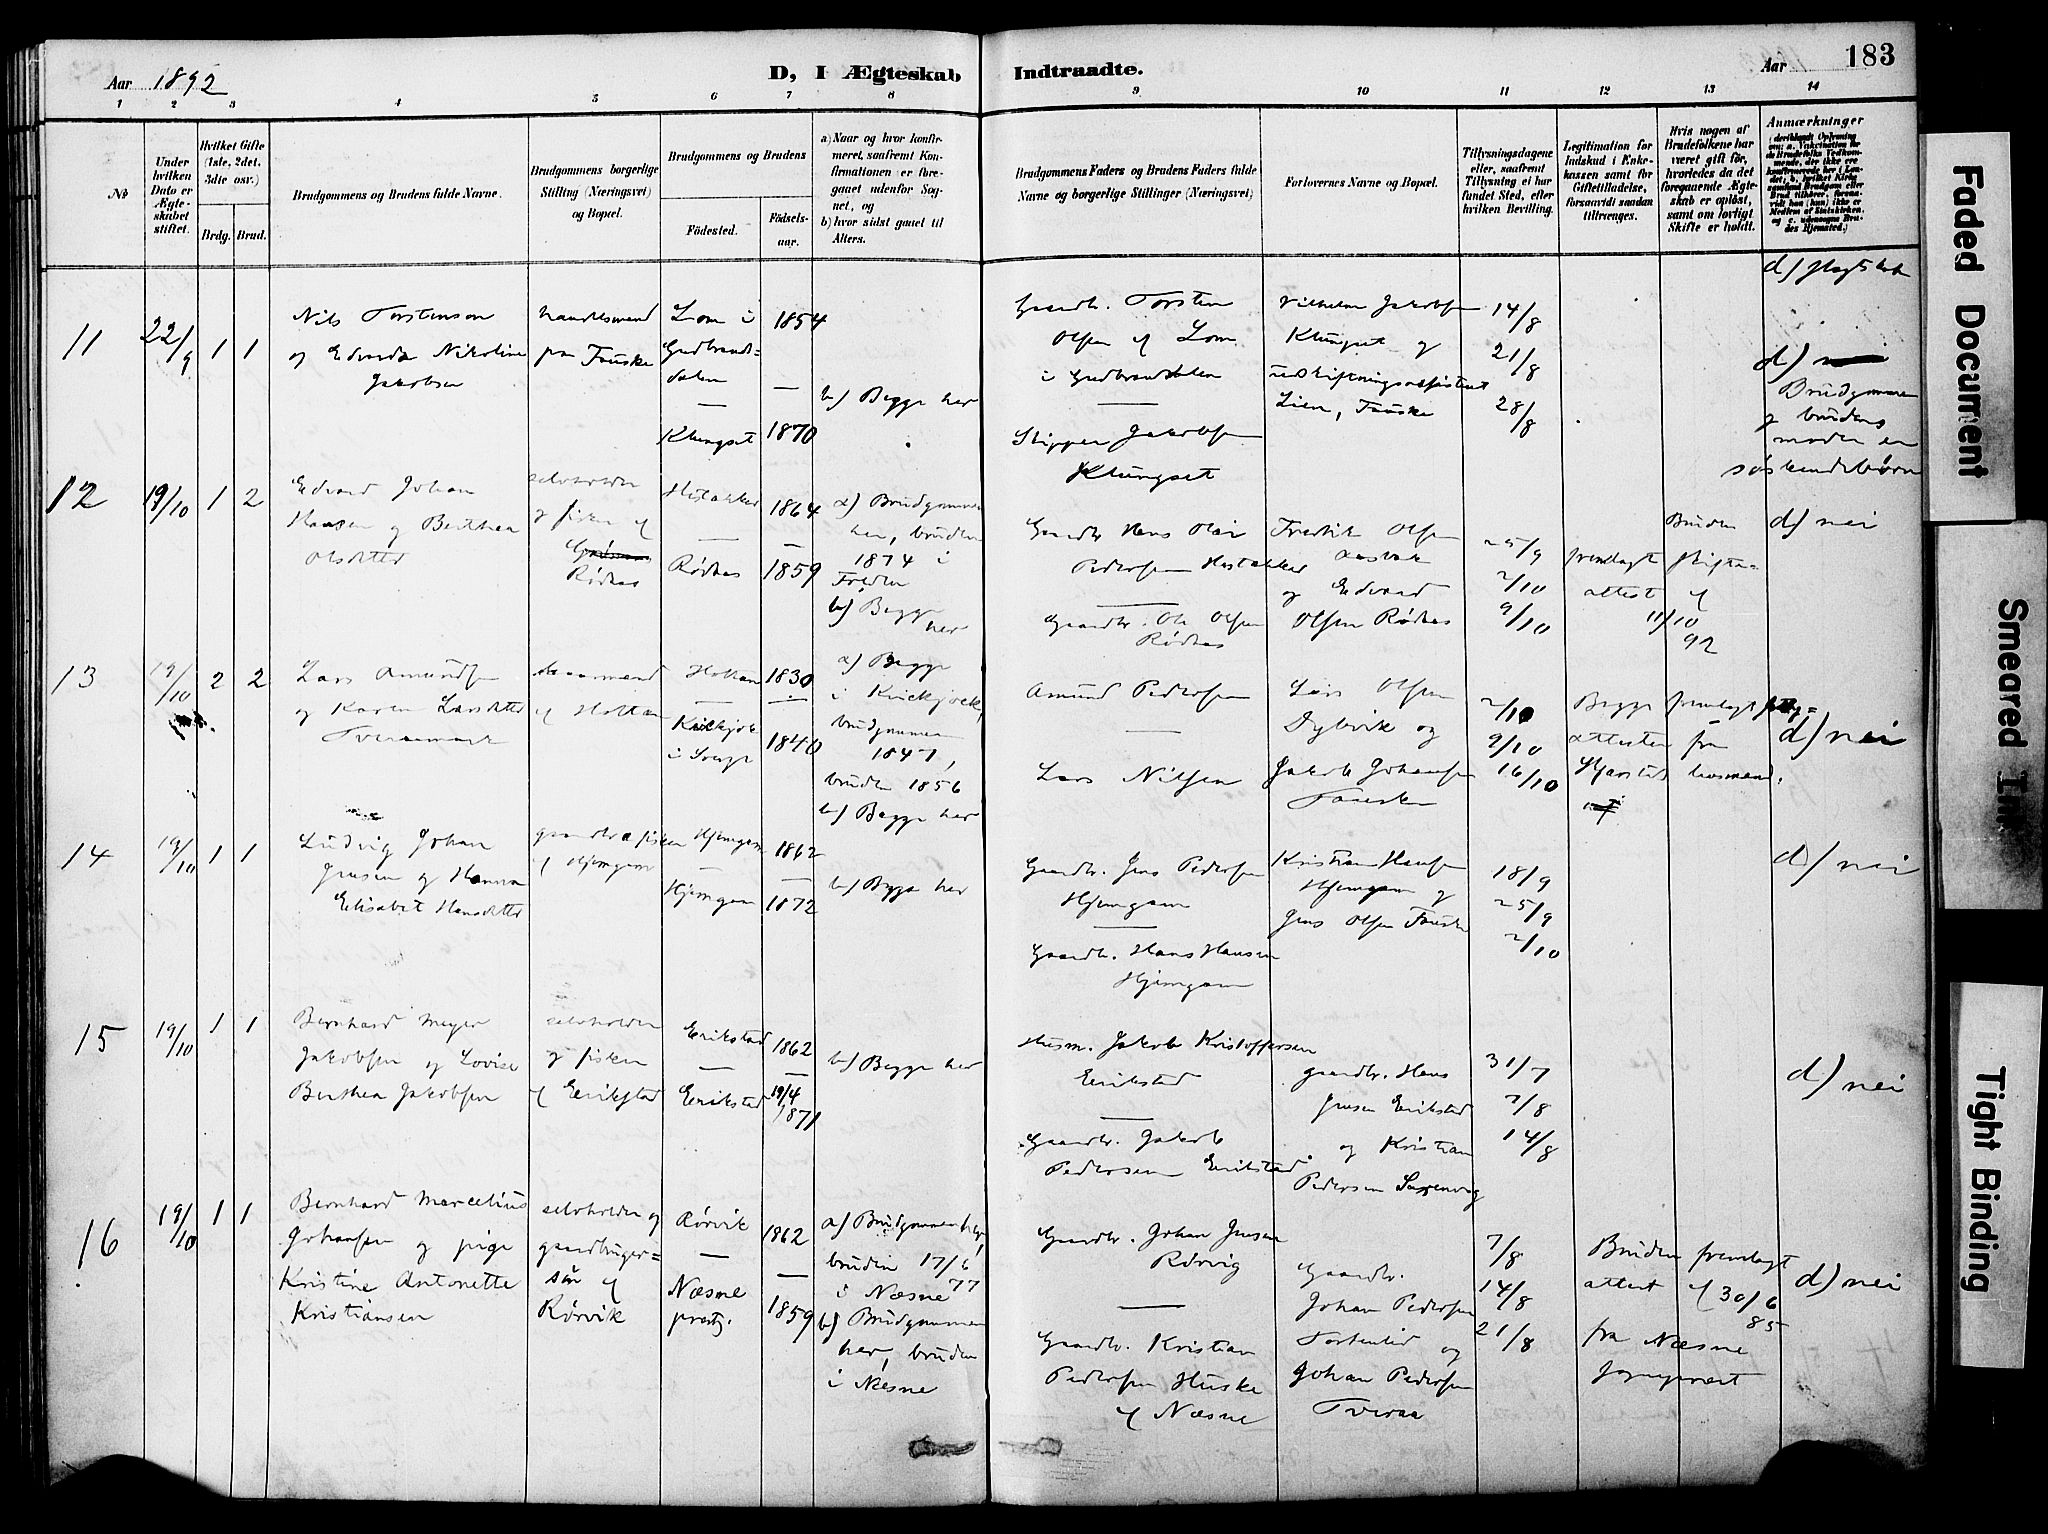 Aar 1892
D, I Ægteskab Indtraadte.
Aar
183
1 2 3 4 5 6 7 8 9 10 11 12 13 14
No
Under hvilken Dato er Ægteskabet stiftet.
Hvilket Gifte (1ste, 2det, 3die osv.)
Brdg. Brud.
Brudgommens og Brudens fulde Navne.
Brudgommens borgerlige Stilling (Næringsvei) og Bopæl.
Brudgommens og Brudens
Födested. Födselsaar.
a) Naar og hvor konfirmeret, saafremt Konfirmationen er foregaaet udenfor Sognet, og
b) hvor sidst gaaet til Alters.
Brudgommens Faders og Brudens Faders fulde Navne og borgerlige Stillinger (Næringsvei)
Forlovernes Navne og Bopæl.
Tillysningsdagene eller, saafremt Tillysning ei har fundet Sted, efter hvilken Bevilling.
Legitimation for Indskud i Enkekassen samt for Giftetilladelse, forsaavidt saadan tiltrænges.
Hvis nogen af Brudefolkene har været gift för, hvorledes da det foregaaende Ægteskab er oplöst, samt om lovligt Skifte er holdt.
Anmærkninger
11
22/9
1 1
Nils Torstensen
og Edvarda Nikoline
Jakobsen
handelsmand
paa Fauske
Lom i
Gudbrands=
dalen
—
Klungset
1854
—
1870
b) Begge her
Gaardbr. Torsten
Olsen af Lom
i Gudbrandsdalen
—
Skipper Jakobsen
Klungset
Vilhelm Jakobsen
Klungset og
udskiftningsassistent
Lien, Fauske
14/8
21/8
28/8
d)
Brudgommen
og brudens
moder er
söskendebørn
12
19/10
1 2
Edvard Johan
Hansen og Berthea
Olsdatter
selvholder
og fisker af
Rödaas
—
Rödaas
1864
—
1859
a) Brudgommen
her, bruden
1874 i
b) Begge
her
Gaardbr. Hans Olai
Pedersen
—
Gaardbr. Ole Olsen
Rödaas
Fredrik Olsen
og Edvard
Olsen Rödaas
25/9
2/10
9/10
fremlagt
attest
Bruden
skifte=
af
11/10
92
d) nei
13
19/10
2 2
Lars Amundsen
og Karen Larsdatter
af Holtan
Holtan
—
Kvikkjok
i Sverge
1830
—
1840
a) Begge
i Kvikkjock,
brudgommen
1847,
bruden 1856
b) Begge her
Amund Pedersen
—
Lars Nilsen
Lars Olsen
Dybvik og
Jakob Johansen
Fauske
2/10
9/10
16/10
Begge fremlagt
attester fra
d) nei
14
19/10
1 1
Ludvig Johan
Jensen og Hanna
Elisabet Hansdatter
gaardbr. og fisker
af Hjemgam
Hjemgam
—
Hjemgam
1862
—
1872
b) Begge her
Gaardbr. Jens Pedersen
Hjemgam
—
Gaardbr. Hans Hansen
Hjemgam
Kristian Hansen
Hjemgam og
Jens Olsen Fauske
18/9
25/9
2/10
d) nei
15
19/10
1 1
Bernhard Meyer
Jakobsen og Lovise
Berthea Jakobsen
selvholder
og fisker
af Erikstad
Erikstad
—
Erikstad
1862
—
19/4
1871
b) Begge her
Husm. Jakob Kristoffersen
Erikstad
—
Gaardbr. Jakob
Pedersen Erikstad
gaardbr. Hans
Jensen Erikstad
og Kristian
Pedersen
31/7
7/8
14/8
d) nei
16
19/10
1 1
Bernhard Marcelius
Johansen og pige
Kristine Antonette
Kristiansen
selvholder og
gaardbruger=
sön af
Rörvik
Rörvik
—
Næsne
prstg.
1862
—
1859
a) Brudgommen her,
bruden 17/6
77
i Næsne
b) Brudgommen
her, bruden
i Næsne
Gaardbr. Johan Jensen
Rörvig
—
Gaardbr. Kristian
Pedersen Huske
af Næsne
Gaardbr.
Johan Pedersen
og
Johan Pedersen
Tveraa
7/8
14/8
21/8
Bruden fremlagt
attest af 30/6
85
fra Næsne
d) nei
Faded Document
Smeared Ink
Tight Binding